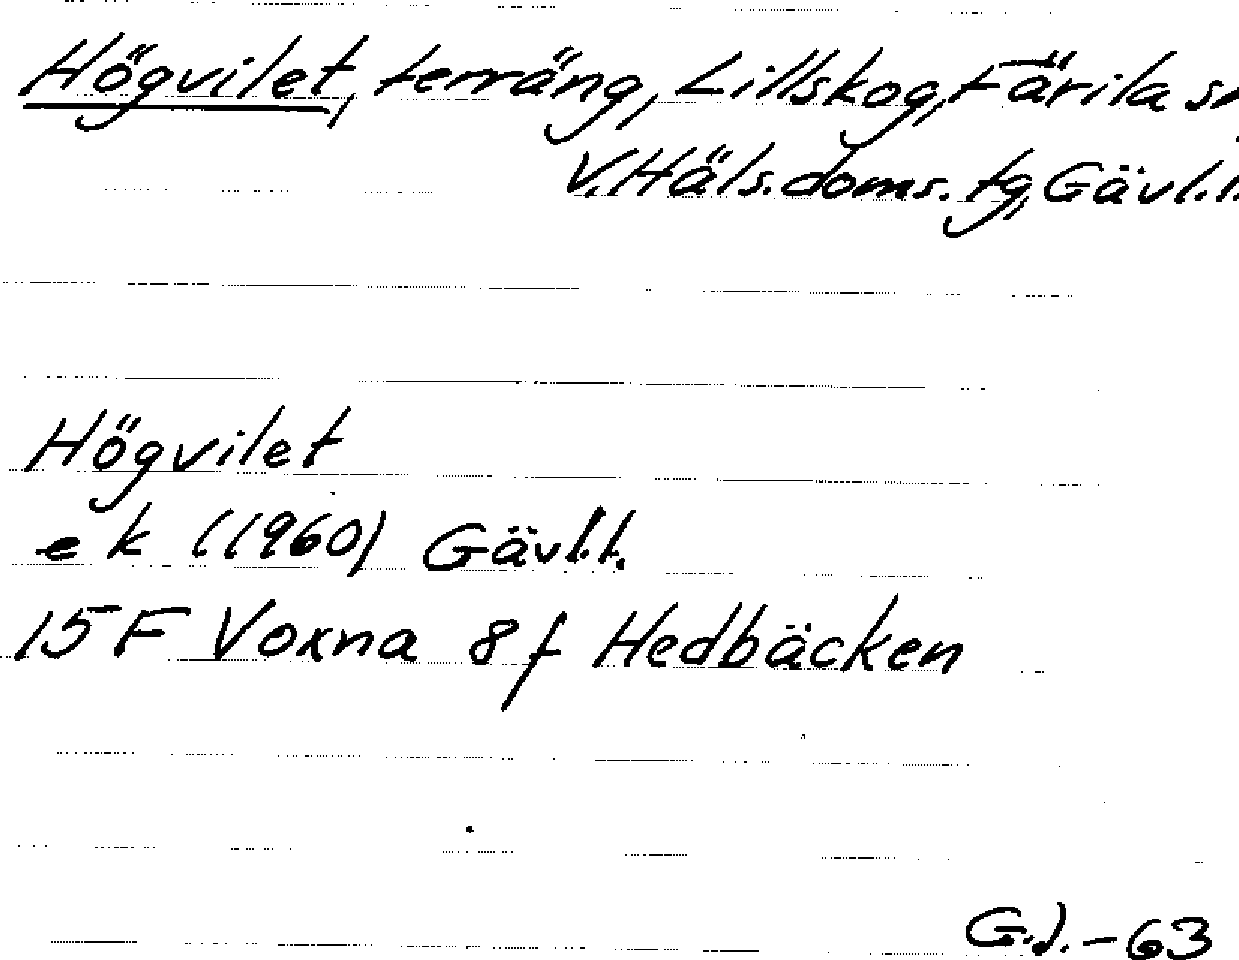 Högvilet, terräng, Lillskog, Färila sn
V. Häls. doms. tg, Gävl.l.
Högvilet
e k (1960) Gävl.l.
15 F Voxna 8 f Hedbäcken
G.J.-63